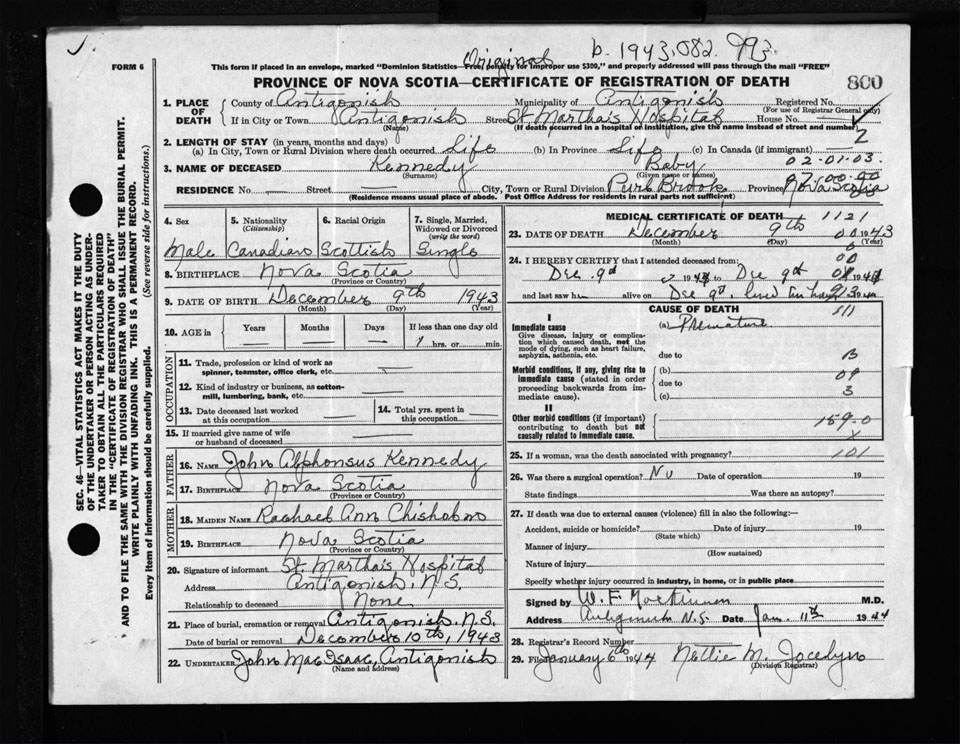 Original b-1943.082.993
FORM 6
This form if placed in an envelope, marked "Dominion Statistics—Free, penalty for improper use $300," and properly addressed will pass through the mail "FREE"
PROVINCE OF NOVA SCOTIA—CERTIFICATE OF REGISTRATION OF DEATH
800
1. PLACE OF DEATH
County of Antigonish Municipality of Antigonish Registered No.
(For use of Registrar General only)
If in City or Town Antigonish Street St. Martha's Hospital House No.
(Name) (If death occurred in a hospital or institution, give the name instead of street and number)
2
2. LENGTH OF STAY (in years, months and days)
(a) In City, Town or Rural Division where death occurred Life (b) In Province Life (c) In Canada (if immigrant)
02-01-03.
3. NAME OF DECEASED Kennedy Baby
(Surname) (Given name or names)
97-00-00
RESIDENCE No. Street City, Town or Rural Division Purl Brook Province Nova Scotia
(Residence means usual place of abode. Post Office Address for residents in rural parts not sufficient)
4. Sex 5. Nationality (Citizenship) 6. Racial Origin 7. Single, Married, Widowed or Divorced (write the word)
Male Canadian Scottish Single
8. BIRTHPLACE Nova Scotia
(Province or Country)
9. DATE OF BIRTH December 9th 1943
(Month) (Day) (Year)
10. AGE in Years Months Days If less than one day old
1 hrs. or min.
OCCUPATION
11. Trade, profession or kind of work as spinner, teamster, office clerk, etc.
12. Kind of industry or business, as cotton-mill, lumbering, bank, etc.
13. Date deceased last worked at this occupation
14. Total yrs. spent in this occupation
15. If married give name of wife or husband of deceased
FATHER
16. NAME John Alphonsus Kennedy
17. BIRTHPLACE Nova Scotia
(Province or Country)
MOTHER
18. MAIDEN NAME Rachael Ann Chisholm
19. BIRTHPLACE Nova Scotia
(Province or Country)
20. Signature of informant St. Martha's Hospital
Address Antigonish, N.S.
Relationship to deceased None
21. Place of burial, cremation or removal Antigonish, N.S.
Date of burial or removal December 10th, 1943
22. UNDERTAKER John MacIsaac, Antigonish
(Name and address)
MEDICAL CERTIFICATE OF DEATH 1121
23. DATE OF DEATH December 9th 1943
(Month) (Day) (Year)
24. I HEREBY CERTIFY that I attended deceased from:
Dec. 9th 1943 to Dec 9th 194
and last saw h alive on Dec 9th 194
CAUSE OF DEATH 111
I
Immediate cause
Give disease, injury or complication which caused death, not the mode of dying, such as heart failure, asphyxia, asthenia, etc.
(a) Premature
due to B
Morbid conditions, if any, giving rise to immediate cause (stated in order proceeding backwards from immediate cause).
(b) 09
due to 3
(c)
II
Other morbid conditions (if important) contributing to death but not causally related to immediate cause.
159-0
X
25. If a woman, was the death associated with pregnancy? 101
26. Was there a surgical operation? No Date of operation 19
State findings Was there an autopsy?
27. If death was due to external causes (violence) fill in also the following:—
Accident, suicide or homicide? Date of injury 19
(State which)
Manner of injury
(How sustained)
Nature of injury
Specify whether injury occurred in industry, in home, or in public place
Signed by W. F. M.D.
Address Antigonish N.S. Date Jan. 11th 1944
28. Registrar's Record Number
29. Filed January 6th 1944 Nellie M. Jocelyn
(Division Registrar)
SEC. 46—VITAL STATISTICS ACT MAKES IT THE DUTY
OF THE UNDERTAKER OR PERSON ACTING AS UNDER-
TAKER TO OBTAIN ALL THE PARTICULARS REQUIRED
IN THE "CERTIFICATE OF REGISTRATION OF DEATH"
AND TO FILE THE SAME WITH THE DIVISION REGISTRAR WHO SHALL ISSUE THE BURIAL PERMIT.
WRITE PLAINLY WITH UNFADING INK. THIS IS A PERMANENT RECORD.
Every item of information should be carefully supplied. (See reverse side for instructions.)